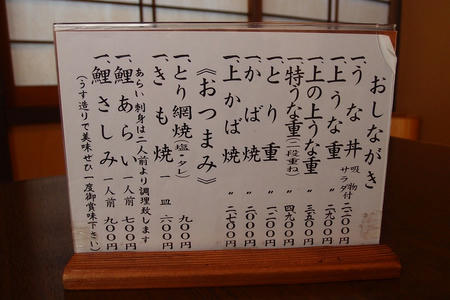 おしながき
一、うな丼 吸物付 サラダ 〃 二二〇〇円
一、上うな重 〃 二九〇〇円
一、上の上うな重 〃 三五〇〇円
一、特うな重(二段重ね) 〃 四九〇〇円
一、とり重 〃
一、かば焼 〃
一、上かば焼 〃 二七〇〇円
《おつまみ》
一、とり網焼(塩・タレ) 九〇〇円
一、きも焼 一皿 六〇〇円
あらい・刺身は二人前より調理致します
一、鯉あらい 一人前 七〇〇円
一、鯉さしみ 一人前 九〇〇円
(うす造りで美味ぜひ一度御賞味下さい)